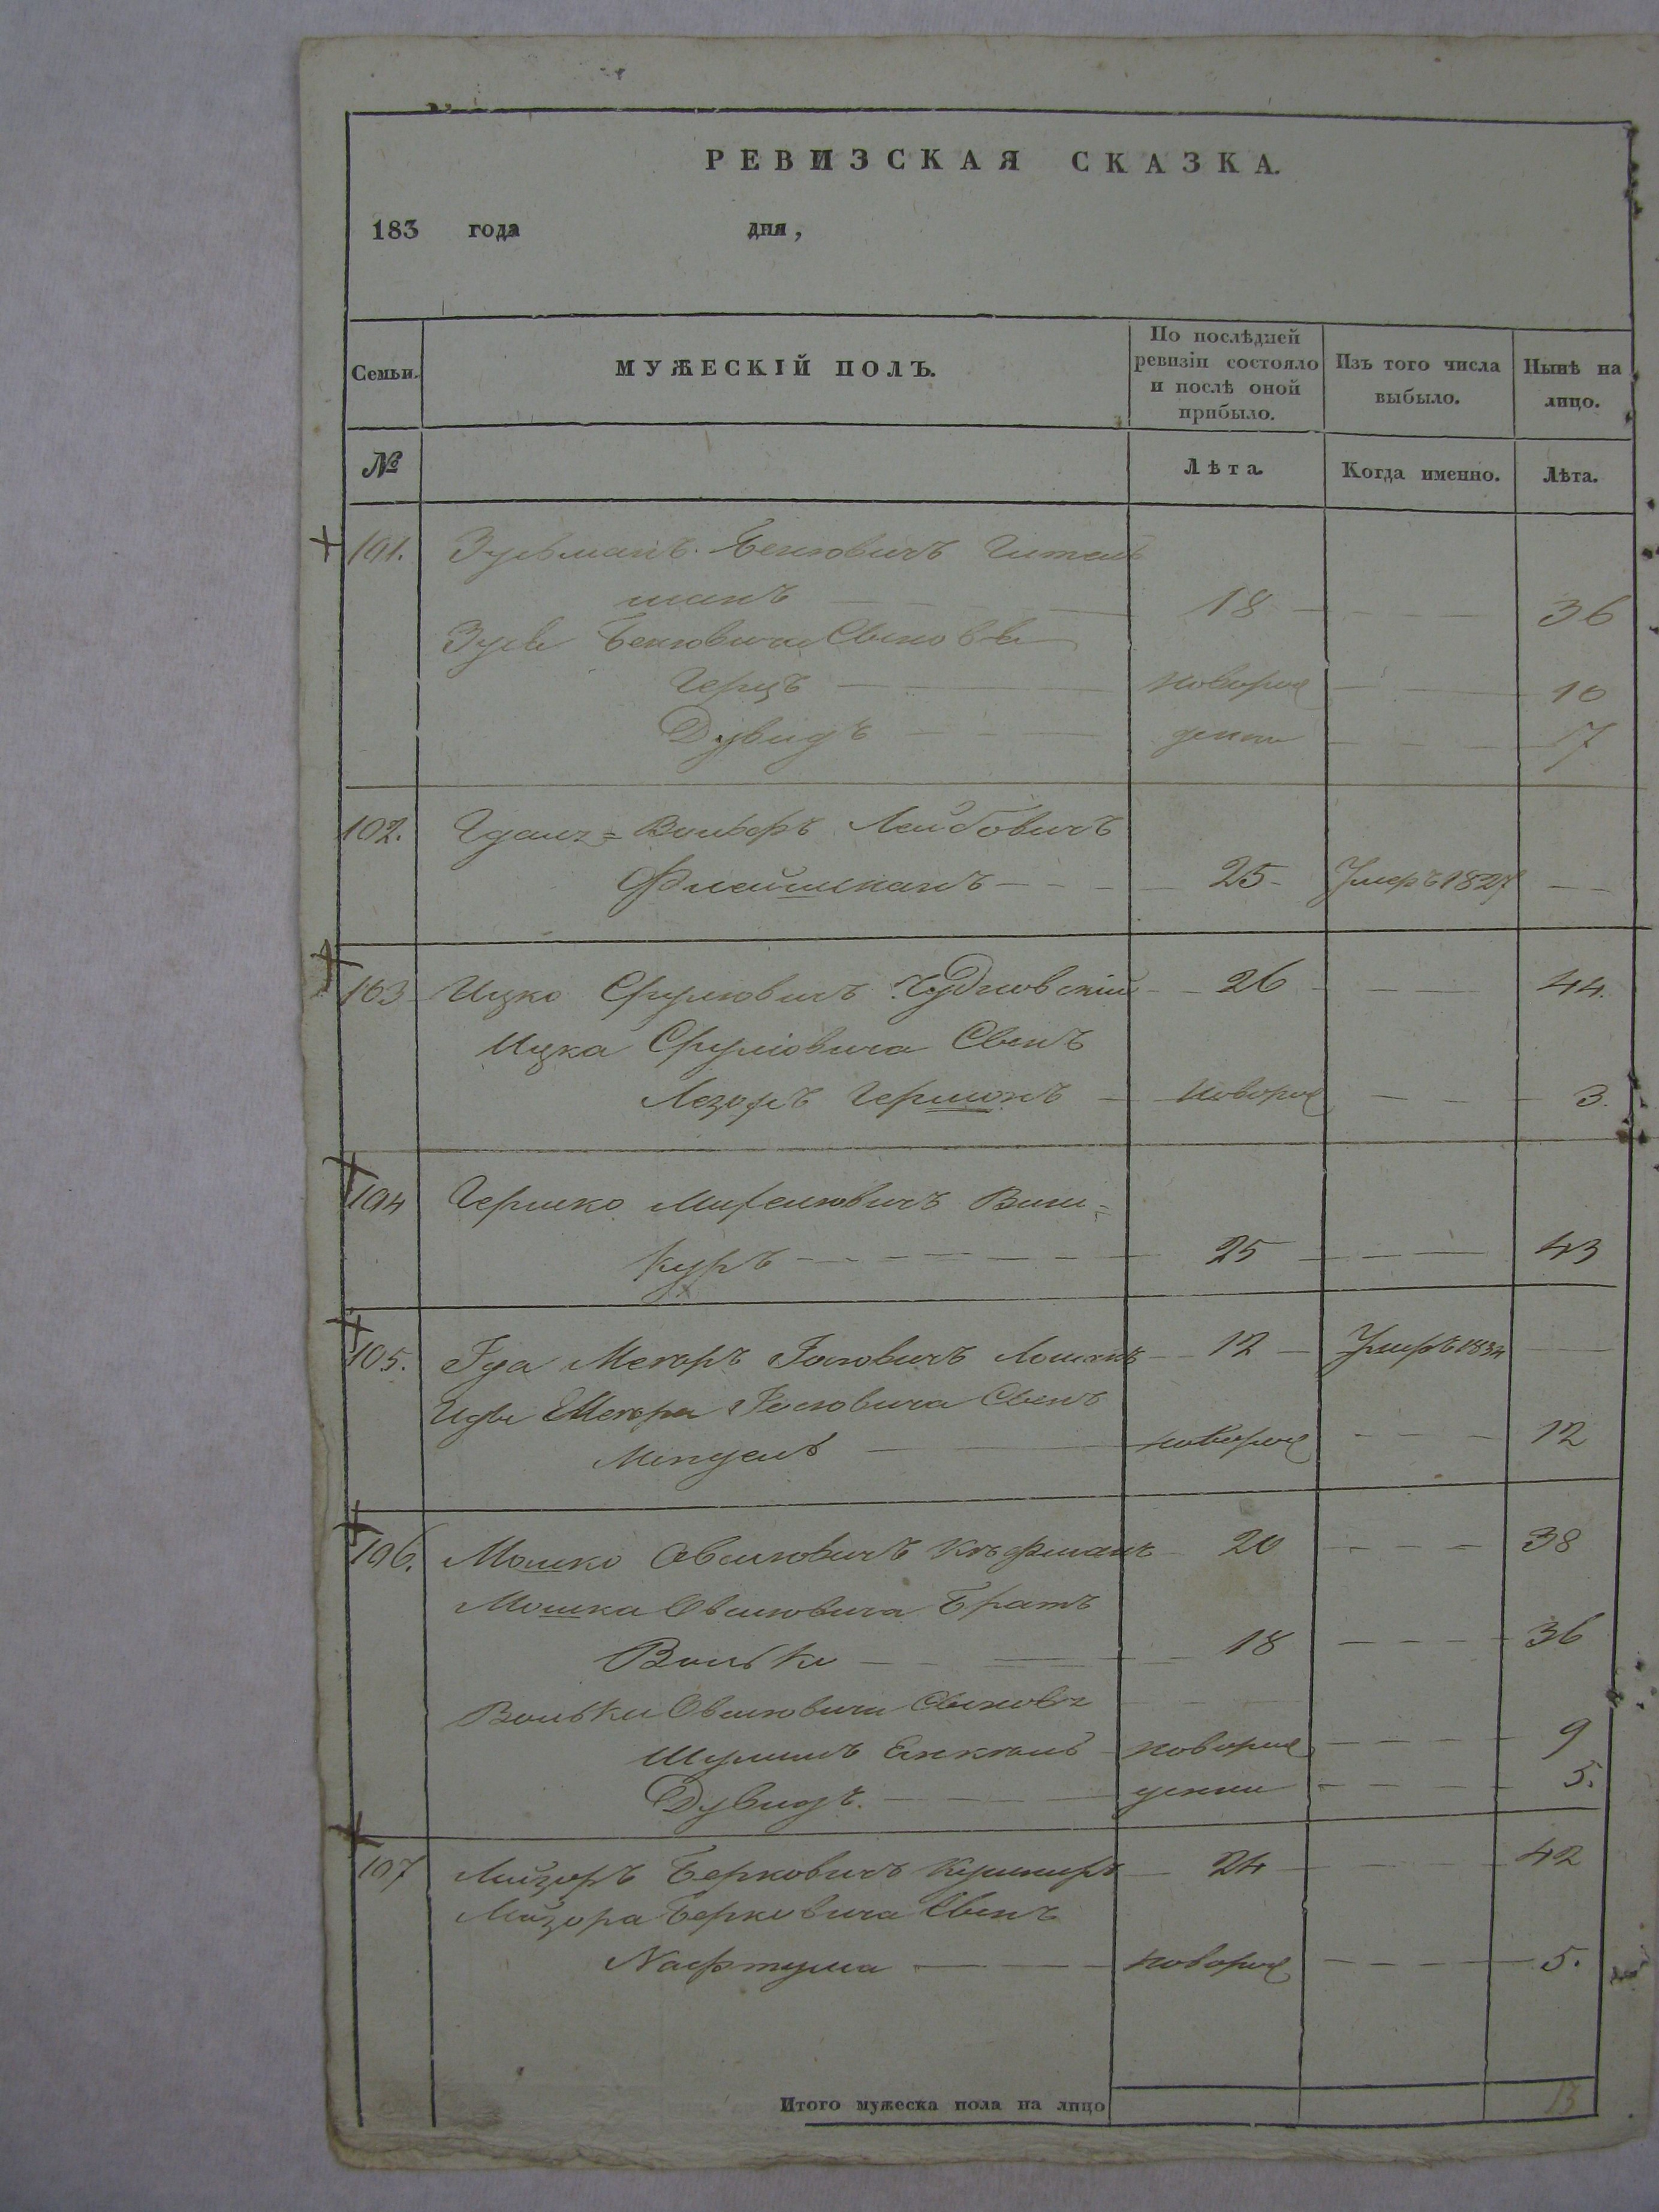 РЕВИЗСКАЯ СКАЗКА.
183 года дня,
Семьи.
МУЖЕСКІЙ ПОЛЪ.
По послѣдней
ревизіи состояло
и послѣ оной
прибыло.
Изъ того числа
выбыло.
Нынѣ на
лицо.
№
Лѣта
Когда именно.
Лѣта.
101. Зусьманъ
манъ 18 36
Сыновья
Герцъ новорож 10
Дувидъ денни 7
102. Вольфъ Лейбовичъ
Флейшманъ 25 Умеръ 1827
103 Ицко Сруловичъ Чудновскій 26 44.
Ицка Сруловича Сынъ
Лезоръ Гершонъ новорож 3.
104 Гершко Вини=
куръ 25 43
105. Іда Мееръ Іосіовичъ 12 Умеръ 1834
Іосіовича Сынъ
Мендель новорож 12
106. Мошко Овшіовичъ 20 38
Мошка Овшіовича Братъ
Волько 18 36
Волька Овшіовича Сыновья
Шулимъ новорож 9
Дувидъ. денни 5.
107 Лейзоръ Берковичъ Кушниръ 24 42
Лейзора Берковича Сынъ
Нафтула новорож 5.
Итого мужеска пола на лицо 13